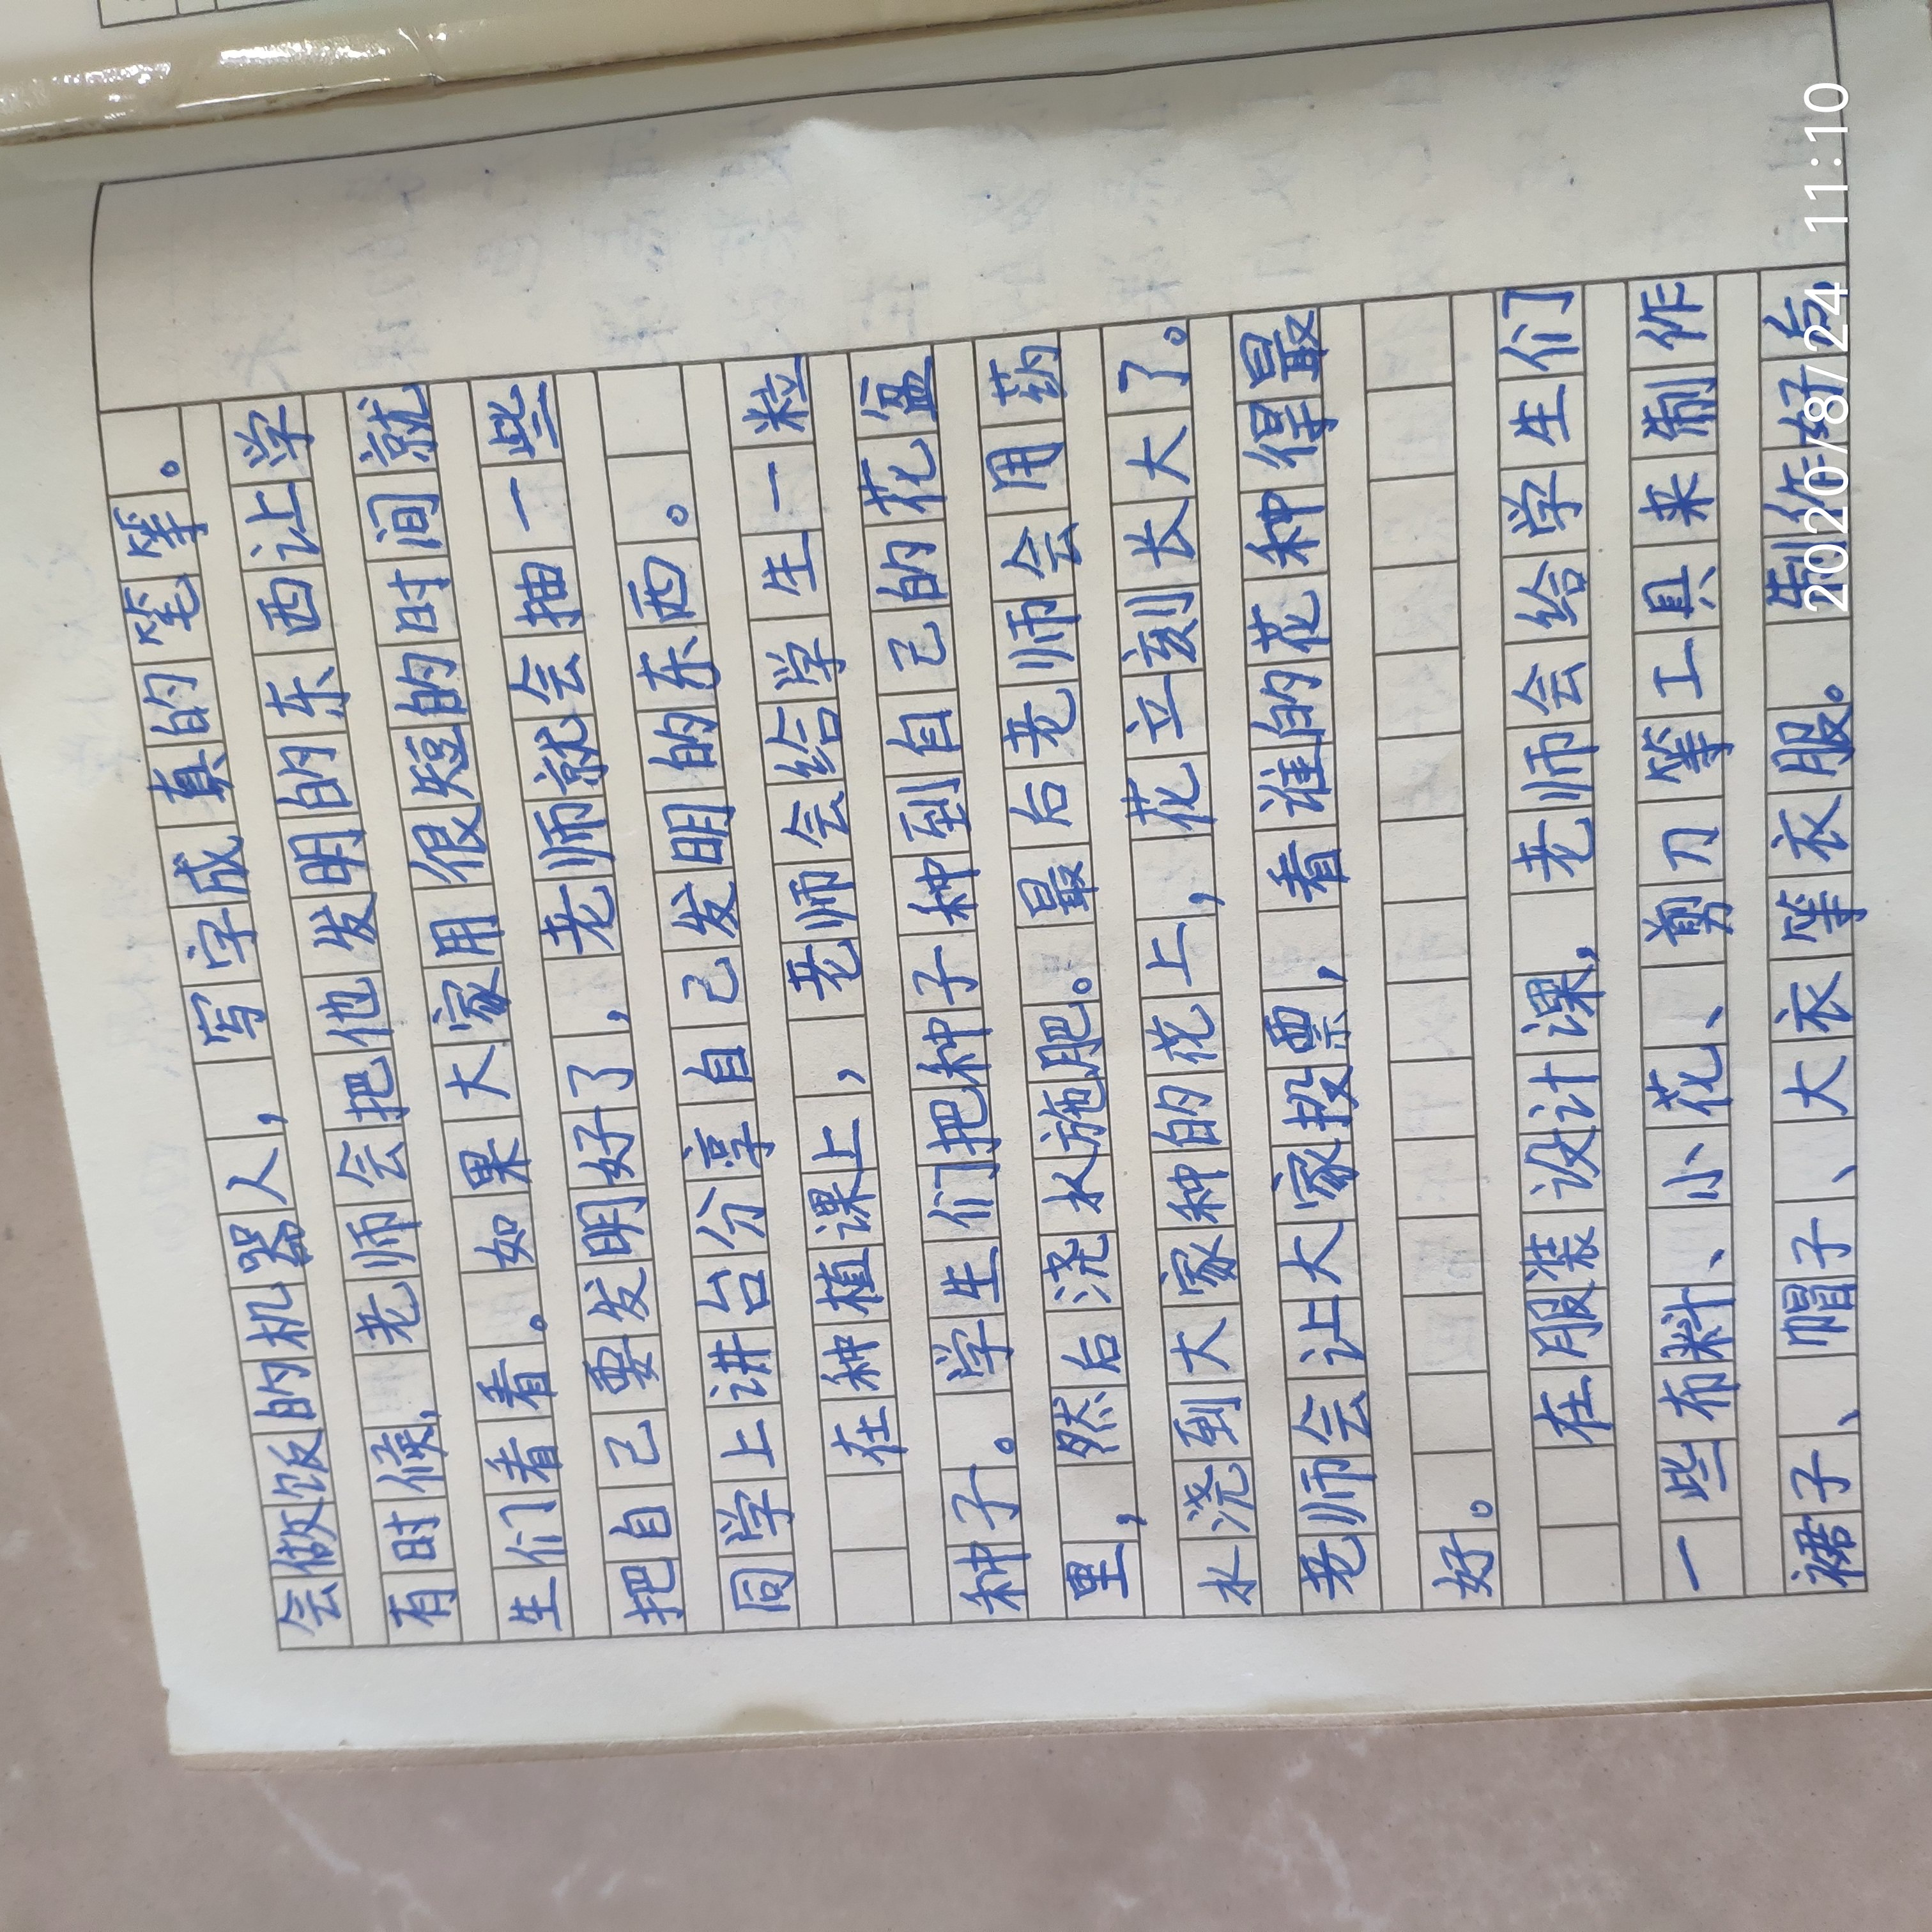 会做饭的机器人，写字成真的笔等。
有时候，老师会把他发明的东西让学
生们看看。如果大家用很短的时间就
把自己要发明好了，老师就会抽一些
同学上讲台分享自己发明的东西。
在种植课上，老师会给学生一粒
种子。学生们把种子种到自己的花盆
里，然后浇水施肥。最后老师会用药
水浇到大家种的花上，花立刻长大了。
老师会让大家投票，看谁的花种得最
好。
在服装设计课，老师会给学生们
一些布料、小花、剪刀等工具来制作
裙子、帽子、大衣等衣服。制作好后
2020/8/24 11:10